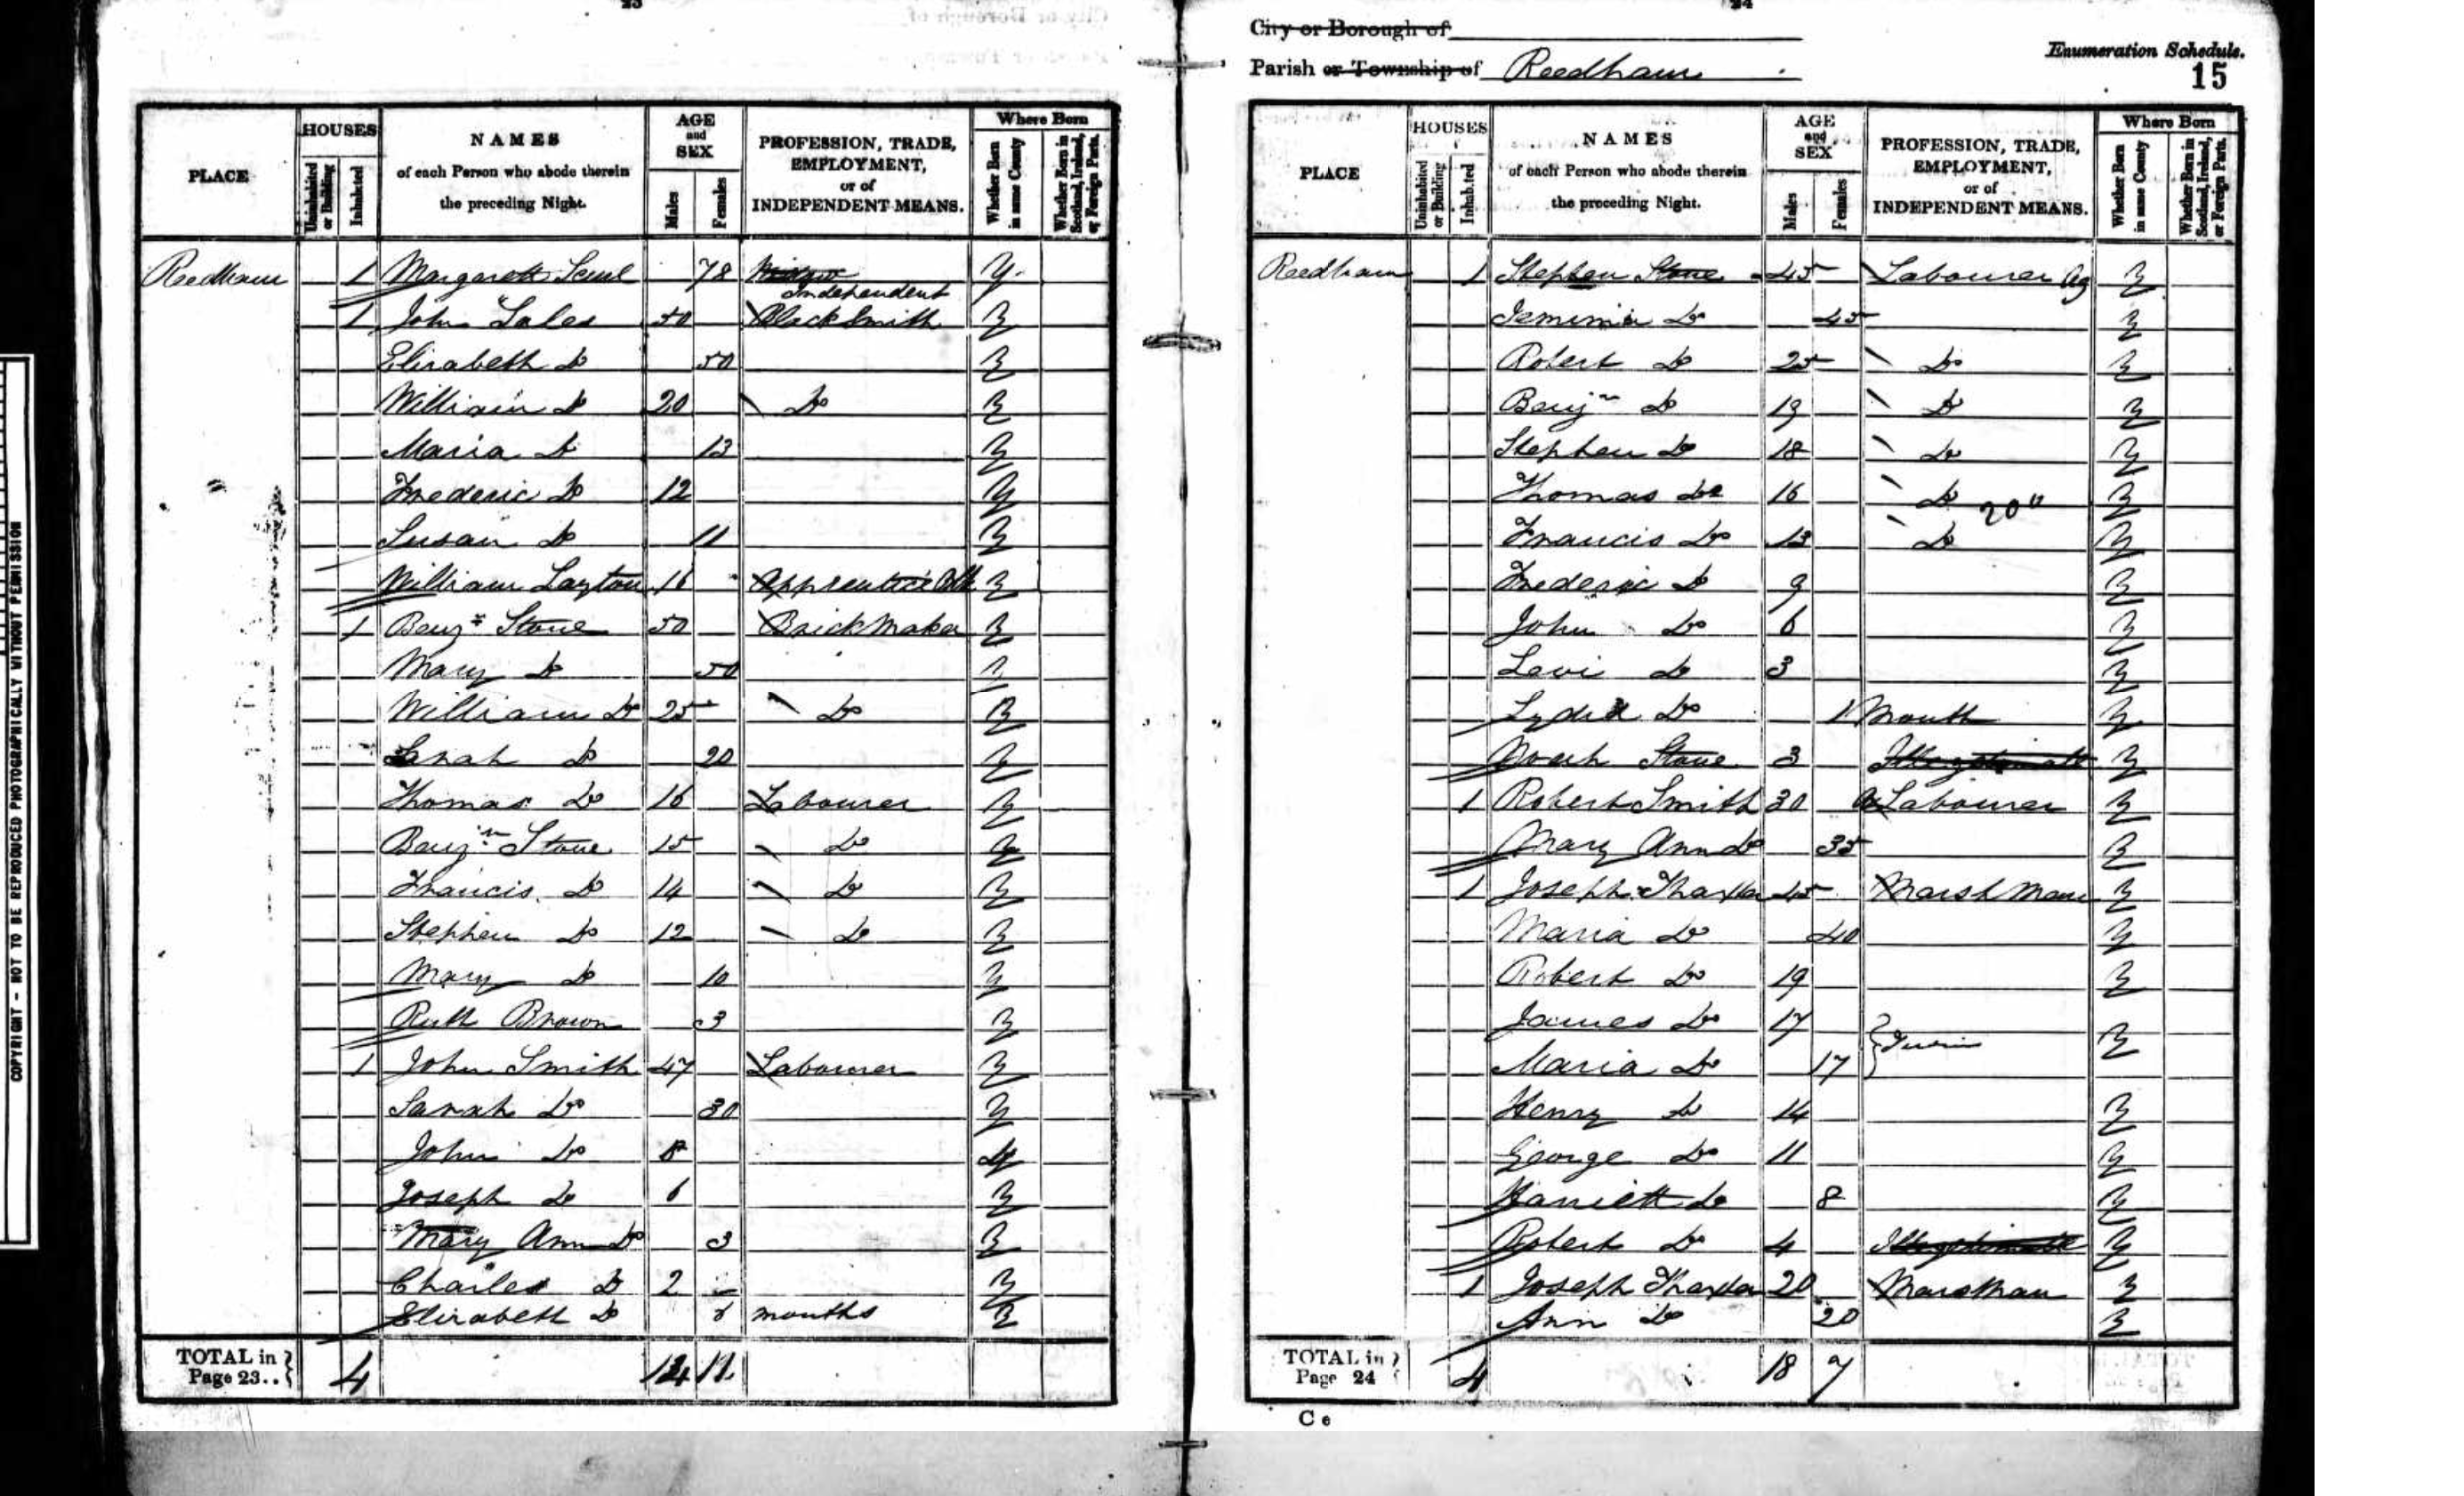 23
COPYRIGHT - NOT TO BE REPRODUCED PHOTOGRAPHICALLY WITHOUT PERMISSION
PLACE
HOUSES
Uninhabited or Building
Inhabited
NAMES
of each Person who abode therein
the preceding Night.
AGE
and
SEX
Males
Females
PROFESSION, TRADE,
EMPLOYMENT,
or of
INDEPENDENT MEANS.
Where Born
Whether Born in same County
Whether Born in Scotland, Ireland, or Foreign Parts.
Reedham 1 Margarett 78 Independent y
1 John Sales 50 BlackSmith y
Elizabeth Do 50 y
William Do 20 Do y
Maria Do 13 y
Frederic Do 12 y
Susan Do 11 y
William Layton 16 Apprentice y
1 Benjn Stone 50 Brick Maker y
Mary Do 50 y
William Do 25 Do y
Sarah Do 20 y
Thomas Do 16 Labourer y
Benjn Stone 15 Do y
Francis Do 14 Do y
Stephen Do 12 Do y
Mary Do 10 y
Ruth Brown 3 y
1 John Smith 47 Labourer y
Sarah Do 30 y
John Do 8 y
Joseph Do 6 y
Mary Ann Do 3 y
Charles Do 2 y
Elizabeth Do months y
TOTAL in
Page 23.. 4 14 11
24
City or Borough of
Parish or Township of Reedham
Enumeration Schedule.
15
PLACE
HOUSES
Uninhabited or Building
Inhabited
NAMES
of each Person who abode therein
the preceding Night.
AGE
and
SEX
Males
Females
PROFESSION, TRADE,
EMPLOYMENT,
or of
INDEPENDENT MEANS.
Where Born
Whether Born in same County
Whether Born in Scotland, Ireland, or Foreign Parts.
Reedham 1 Stephen Stone 45 Labourer Ag y
Jemima Do 45 y
Robert Do 25 Do y
Benjn Do 19 Do y
Stephen Do 18 Do y
Thomas Do 16 Do y
200
Francis Do 13 Do y
Frederic Do 9 y
John Do 6 y
Levi Do 3 y
Lydia Do 1 Month y
Noah Stone 3 Illegitimate y
1 Robert Smith 30 Labourer y
Mary Ann Do 35 y
1 Joseph Thaxter 45 Marsh Man y
Maria Do 40 y
Robert Do 19 y
James Do 17 y
Twin
Maria Do 17
Henry Do 14 y
George Do 11 y
Harriett Do 8 y
Robert Do 4 Illegitimate y
1 Joseph Thaxter 20 Marshman y
Ann Do 20 y
TOTAL in
Page 24 4 18 7
C e